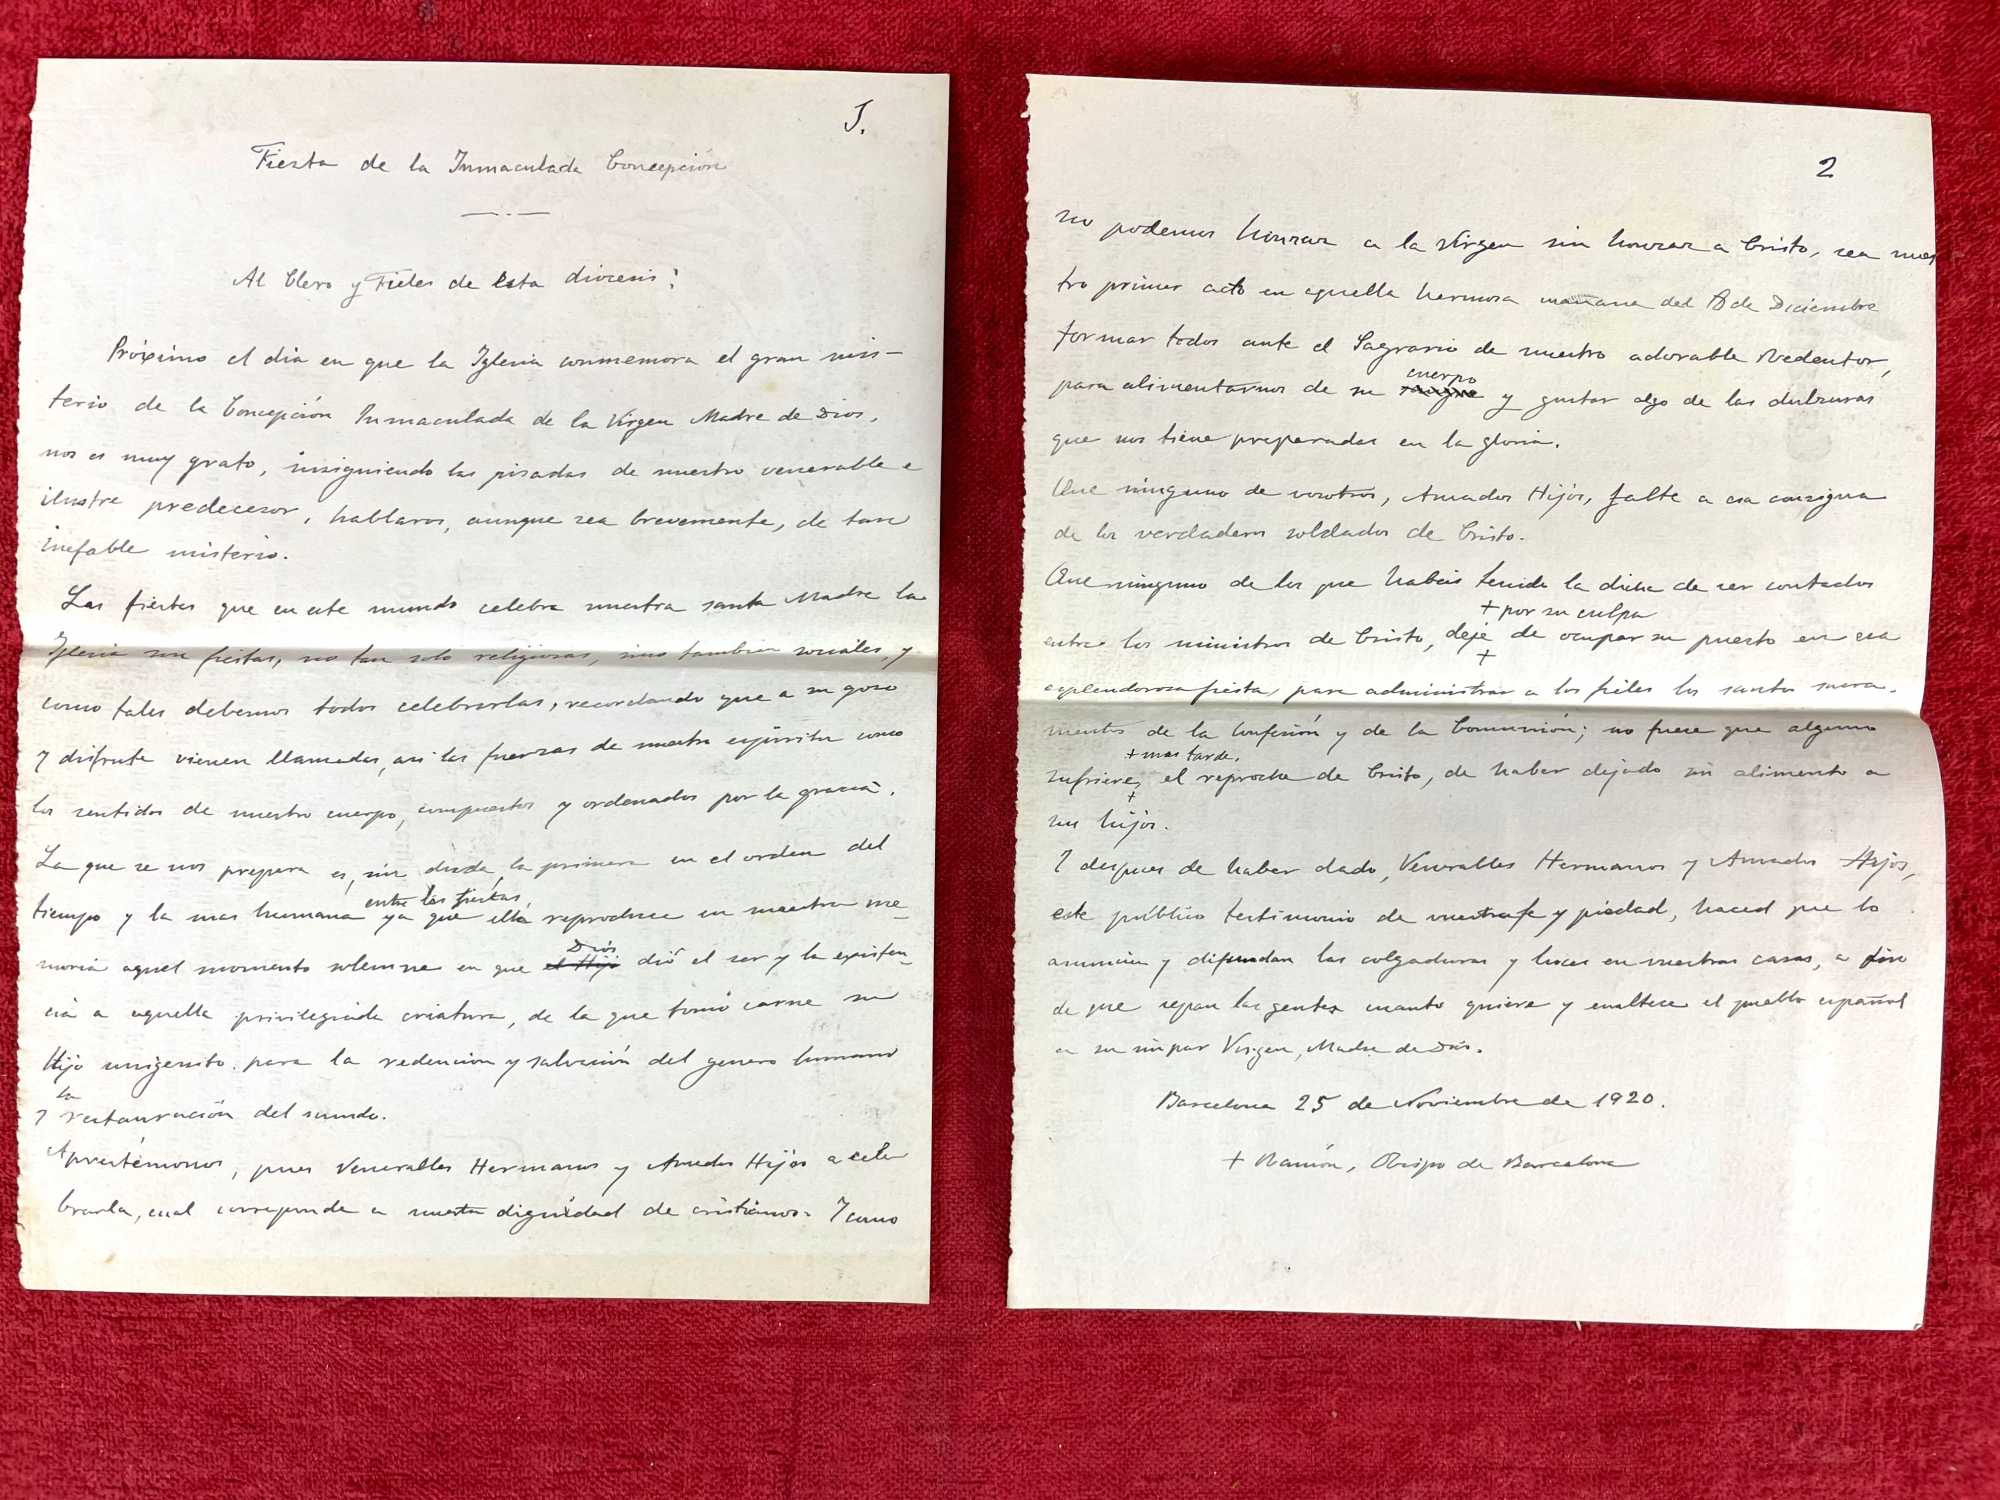 1.
Fiesta de la Inmaculada Concepción
Al Clero y Fieles de esta diocesis:
Próximo el día en que la Iglesia conmemora el gran mis-
terio de la Concepción Inmaculada de la Virgen Madre de Dios,
nos es muy grato, insiguiendo las pisadas de nuestro venerable e
ilustre predecesor, hablaros, aunque sea brevemente, de tan
inefable misterio.
Las fiestas que en este mundo celebra nuestra santa Madre la
Iglesia son fiestas, no tan solo religiosas, sino tambien sociales, y
como tales debemos todos celebrarlas, recordando que a su gozo
y disfrute vienen llamadas, asi las fuerzas de nuestro espiritu como
los sentidos de nuestro cuerpo, compuestos y ordenados por la gracia.
La que se nos prepara es, sin duda, la primera en el orden del
entre las fiestas,
tiempo y la mas humana ya que ella reproduce en nuestra me-
Dios
moria aquel momento solemne en que el Hijo dió el ser y la existen-
cia a aquella privilegiada criatura, de la que tomó carne su
Hijo unigenito para la redencion y salvación del genero humano
la
y restauración del mundo.
Aprestémonos, pues Venerables Hermanos y Amados Hijos a cele
brarla, cual corresponde a nuestra dignidad de cristianos. Y como
2
no podemos honrar a la Virgen sin honrar a Cristo, sea nues
tro primer acto en aquella hermosa mañana del 8 de Diciembre
formar todos ante el Sagrario de nuestro adorable Redentor,
cuerpo
para alimentarnos de su sangre y gustar algo de las dulzuras
que nos tiene preparadas en la gloria.
Que ninguno de vosotros, Amados Hijos, falte a esa consigna
de los verdaderos soldados de Cristo.
Que ninguno de los que habeis tenido la dicha de ser contados
+ por su culpa
entre los ministros de Cristo, deje de ocupar su puesto en esa
+
esplendorosa fiesta, para administrar a los fieles los santos sacra-
mentos de la Confesión y de la Comunión; no fuese que alguno
+ mas tarde,
sufriese, el reproche de Cristo, de haber dejado sin alimento a
+
sus hijos.
Y despues de haber dado, Venerables Hermanos y Amados Hijos,
este público testimonio de vuestra fe y piedad, haced que lo
anuncien y difundan las colgaduras y luces en vuestras casas, a fin
de que sepan las gentes cuanto quiere y enaltece el pueblo español
a su sin par Virgen, Madre de Dios.
Barcelona 25 de Noviembre de 1920.
+ Ramón, Obispo de Barcelona